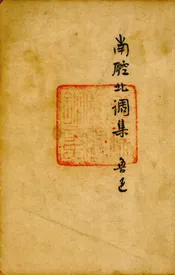 南腔北调集
鲁迅